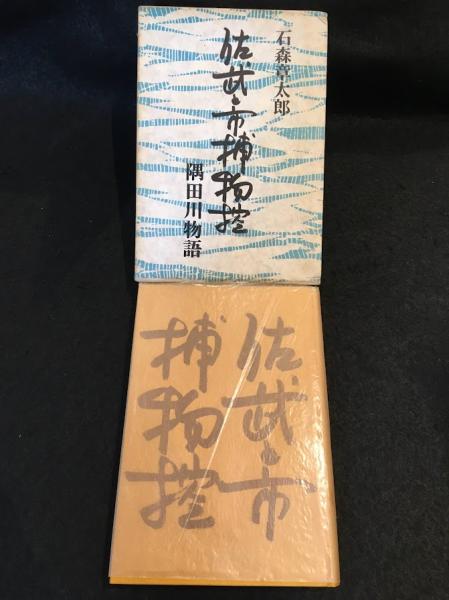 石森章太郎
佐武・市捕物控
隅田川物語
佐武・市
捕物控